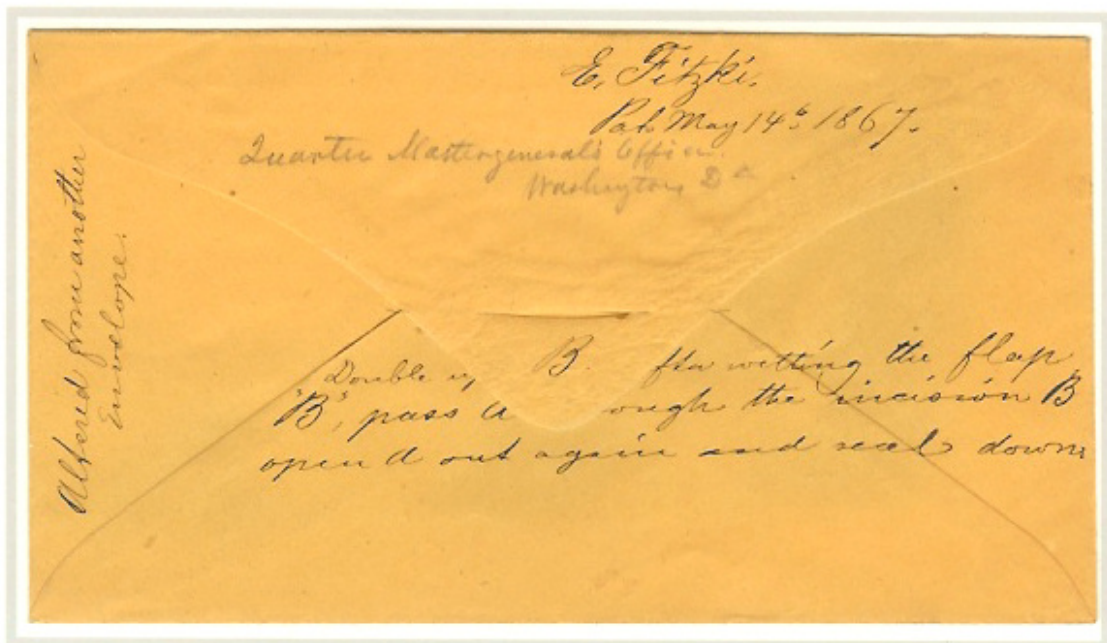 E. Fitzki.
Pat. May 14th 1867.
Quarter Mastergeneral's Office.
Washington D C
Altered from another
Envelope.
Double up B. after wetting the flap
"B", pass through the incision B
open d out again and seal down